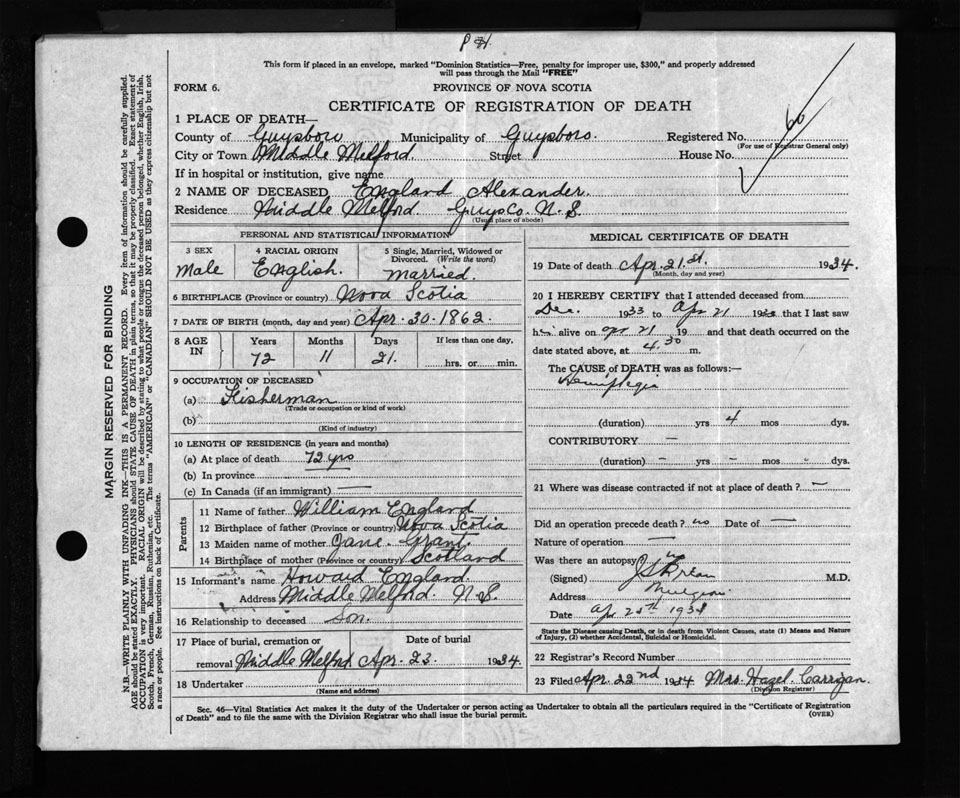 This form if placed in an envelope, marked "Dominion Statistics—Free, penalty for improper use, $300," and properly addressed
will pass through the Mail "FREE"
FORM 6.
PROVINCE OF NOVA SCOTIA
CERTIFICATE OF REGISTRATION OF DEATH
1 PLACE OF DEATH—
County of Guysboro Municipality of Guysboro. Registered No. 60
(For use of Registrar General only)
City or Town Middle Melford Street House No.
If in hospital or institution, give name
2 NAME OF DECEASED England Alexander.
Residence Middle Melford Guys Co. N. S.
(Usual place of abode)
PERSONAL AND STATISTICAL INFORMATION
3 SEX
Male
4 RACIAL ORIGIN
English.
5 Single, Married, Widowed or
Divorced. (Write the word)
married.
6 BIRTHPLACE (Province or country) Nova Scotia
7 DATE OF BIRTH (month, day and year) Apr. 30. 1862.
8 AGE IN
Years Months Days If less than one day,
72 11 21. hrs. or min.
9 OCCUPATION OF DECEASED
(a) Fisherman
(Trade or occupation or kind of work)
(b)
(Kind of industry)
10 LENGTH OF RESIDENCE (in years and months)
(a) At place of death 72 yrs
(b) In province
(c) In Canada (if an immigrant) —
Parents
11 Name of father William England
12 Birthplace of father (Province or country) Nova Scotia
13 Maiden name of mother Jane Grant.
14 Birthplace of mother (Province or country) Scotland
15 Informant's name Howard England.
Address Middle Melford. N. S.
16 Relationship to deceased Son.
17 Place of burial, cremation or Date of burial
removal Middle Melford Apr. 23 1934
18 Undertaker
(Name and address)
MEDICAL CERTIFICATE OF DEATH
19 Date of death Apr. 21.st. 1934.
(Month, day and year)
20 I HEREBY CERTIFY that I attended deceased from
Dec. 1933 to Apr 21 193 that I last saw
h alive on apr 21 19 and that death occurred on
date stated above, at 4.30 m.
The CAUSE of DEATH was as follows:—
Hemiplegia
(duration) yrs 4 mos dys.
CONTRIBUTORY —
(duration) - yrs - mos - dys.
21 Where was disease contracted if not at place of death? —
Did an operation precede death? no Date of —
Nature of operation —
Was there an autopsy?
(Signed) M.D.
Address Mulgrave
Date ap 193
State the Disease causing Death, or in death from Violent Causes, state (1) Means and Nature
of Injury, (2) whether Accidental, Suicidal or Homicidal.
22 Registrar's Record Number
23 Filed Apr. 22nd 1934 Mrs. Hazel Carrigan.
(Division Registrar)
Sec. 46—Vital Statistics Act makes it the duty of the Undertaker or person acting as Undertaker to obtain all the particulars required in the "Certificate of Registration
of Death" and to file the same with the Division Registrar who shall issue the burial permit.
(OVER)
MARGIN RESERVED FOR BINDING
N.B.—WRITE PLAINLY WITH UNFADING INK—THIS IS A PERMANENT RECORD. Every item of information should be carefully supplied.
AGE should be stated EXACTLY. PHYSICIANS should STATE CAUSE OF DEATH in plain terms, so that it may be properly classified. Exact statement of
OCCUPATION is very important. RACIAL ORIGIN will be described by stating to what people or tongue the deceased person belonged, whether English, Irish,
Scotch, French, German, Russian, Ruthenian, etc. The terms "AMERICAN" or "CANADIAN" SHOULD NOT BE USED as they express citizenship but not
a race or people. See instructions on back of Certificate.